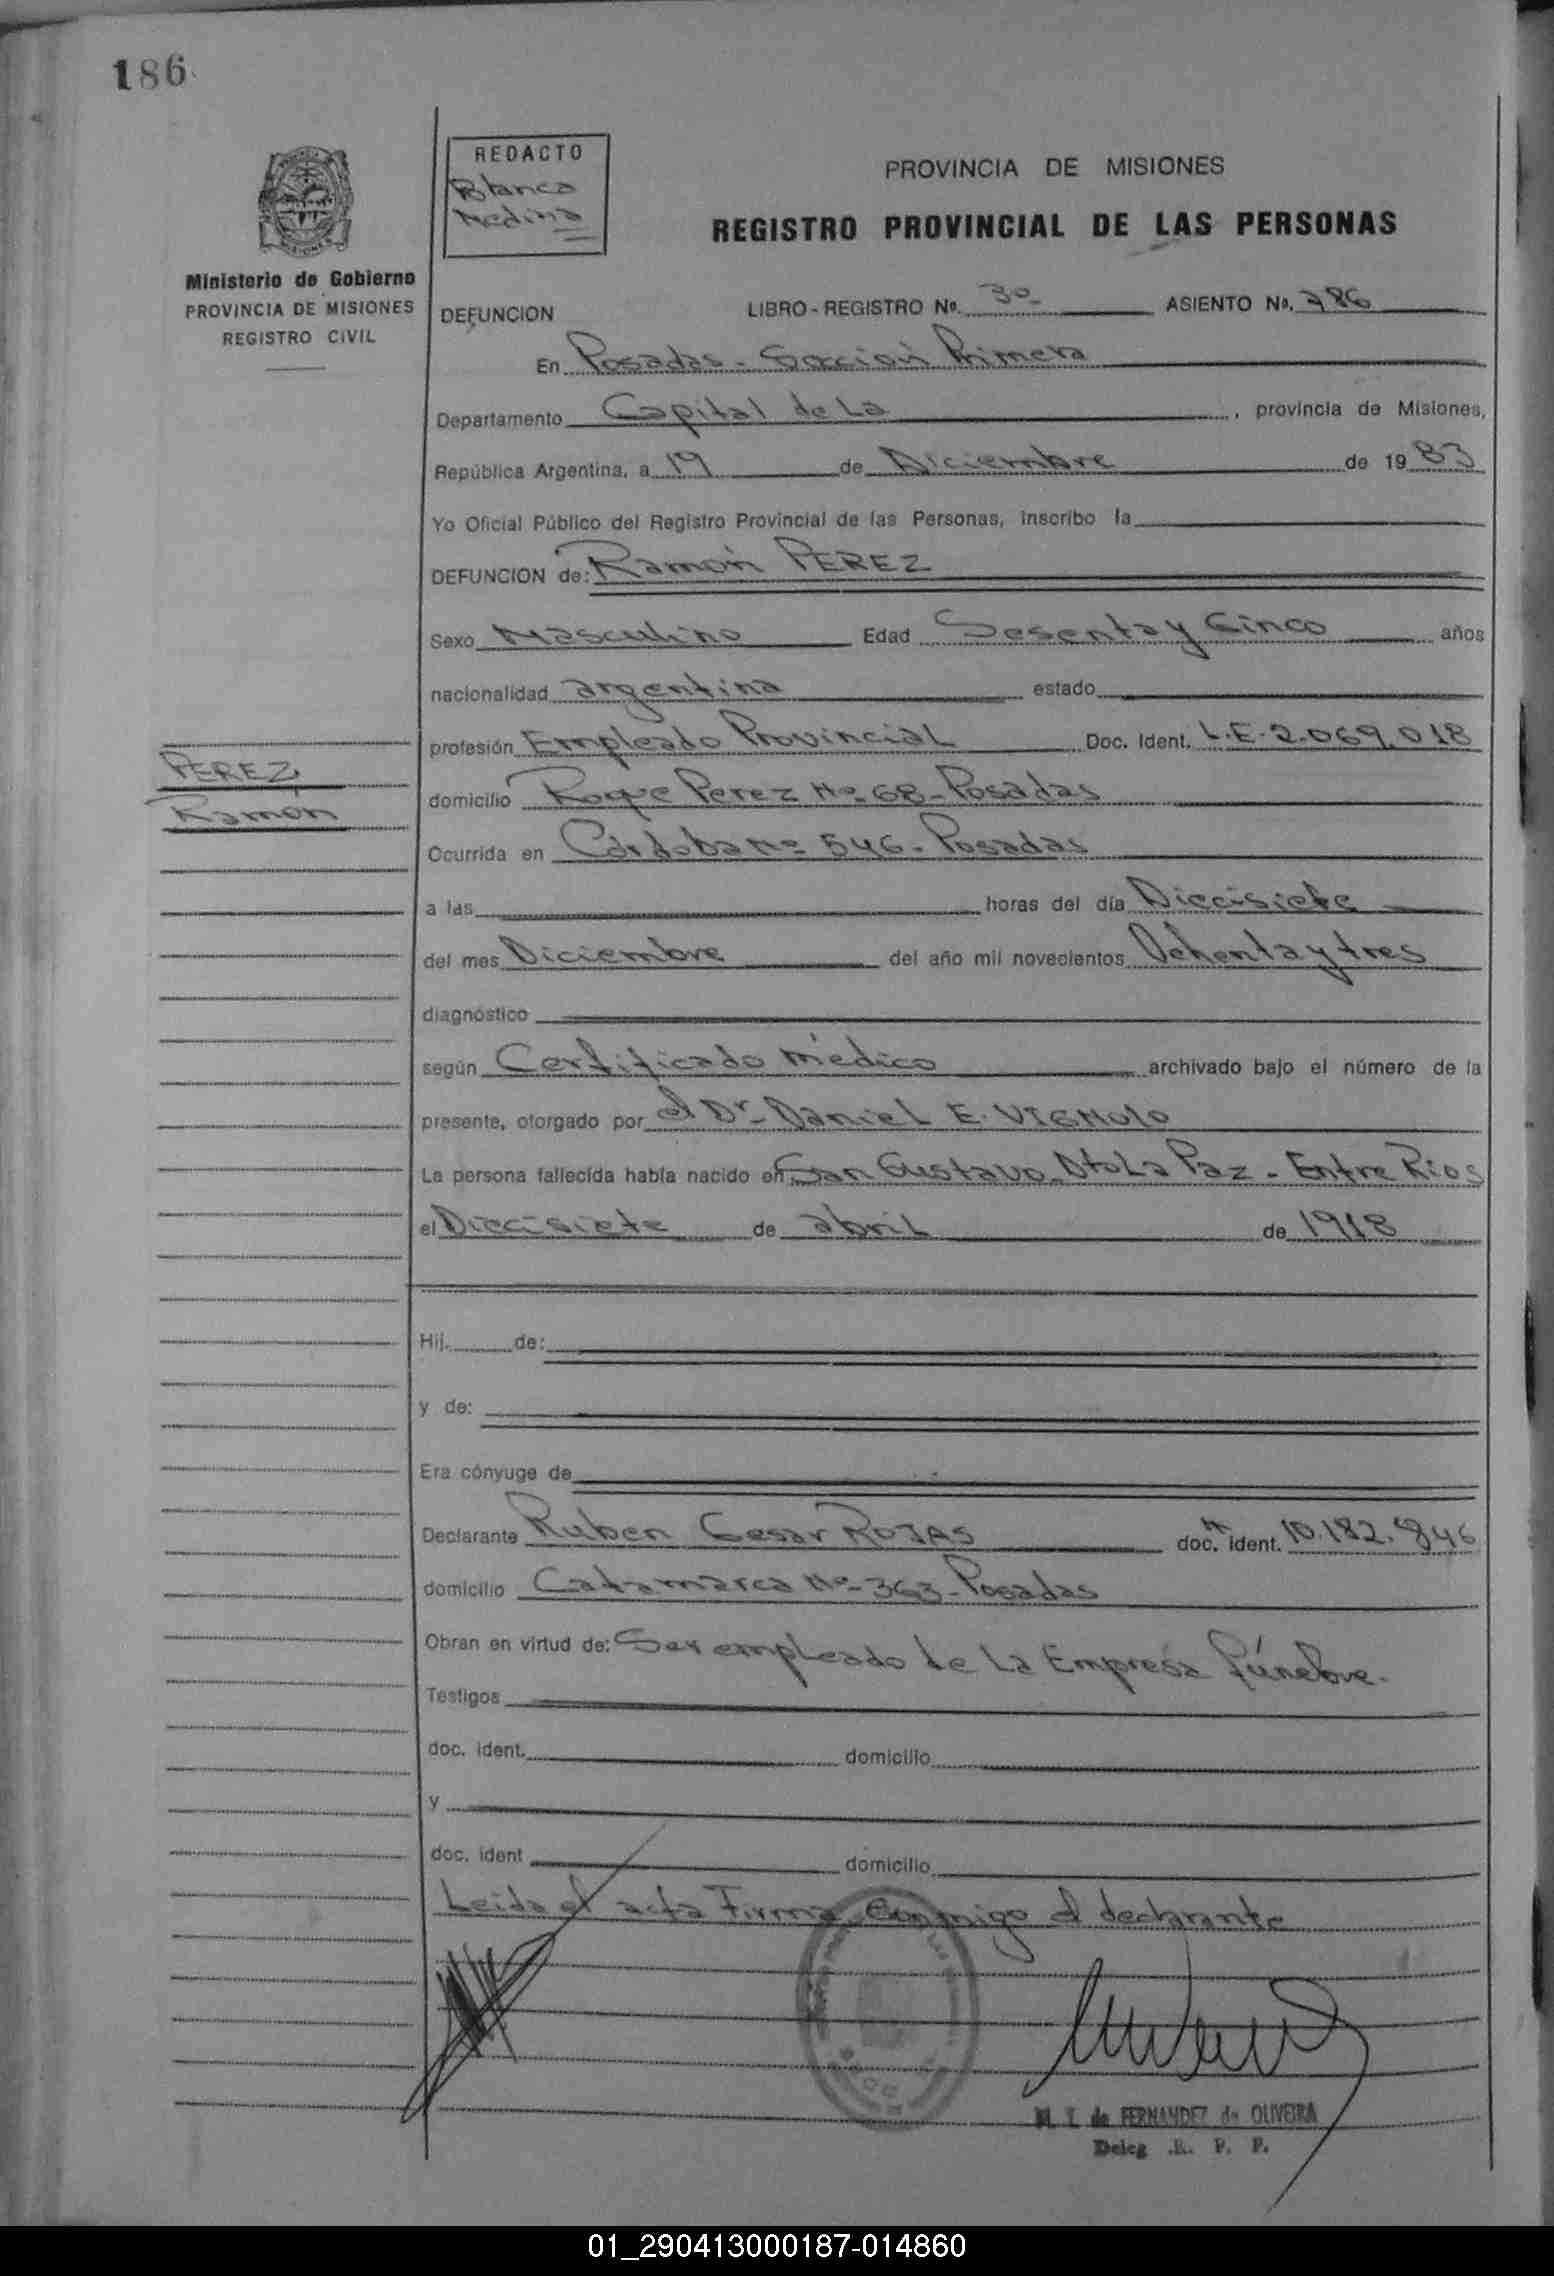 186
REDACTO
Blanca
Medina
Ministerio de Gobierno
PROVINCIA DE MISIONES
REGISTRO CIVIL
PROVINCIA DE MISIONES
REGISTRO PROVINCIAL DE LAS PERSONAS
DEFUNCION LIBRO - REGISTRO Nº. 30 ASIENTO Nº. 786
En Posadas - Sección Primera
Departamento Capital de La, provincia de Misiones,
República Argentina, a 19 de Diciembre de 1983
Yo Oficial Público del Registro Provincial de las Personas, inscribo la
DEFUNCION de: Ramón PEREZ
Sexo Masculino Edad Sesenta y Cinco años
nacionalidad argentina estado
profesión Empleado Provincial Doc. Ident. L.E. 2.069.018
PEREZ,
Ramón
domicilio Roque Perez Nº 68 - Posadas
Ocurrida en Córdoba Nº 546 - Posadas
a las horas del día Diecisiete
del mes Diciembre del año mil novecientos Ochenta y tres
diagnóstico
según Certificado médico archivado bajo el número de la
presente, otorgado por el Dr. Daniel E. VIGNOLO
La persona fallecida había nacido en San Gustavo - Dto La Paz - Entre Rios
el Diecisiete de abril de 1918
Hij. de:
y de:
Era cónyuge de
Declarante Ruben Cesar ROJAS doc. ident. 10.182.846
domicilio Catamarca Nº 363 - Posadas
Obran en virtud de: Ser empleado de la Empresa fúnebre.
Testigos
doc. ident. domicilio
y
doc. ident domicilio
Leida el acta Firma conmigo el declarante
M. T. de FERNANDEZ de OLIVEIRA
Deleg .R. P. P.
01_290413000187-014860